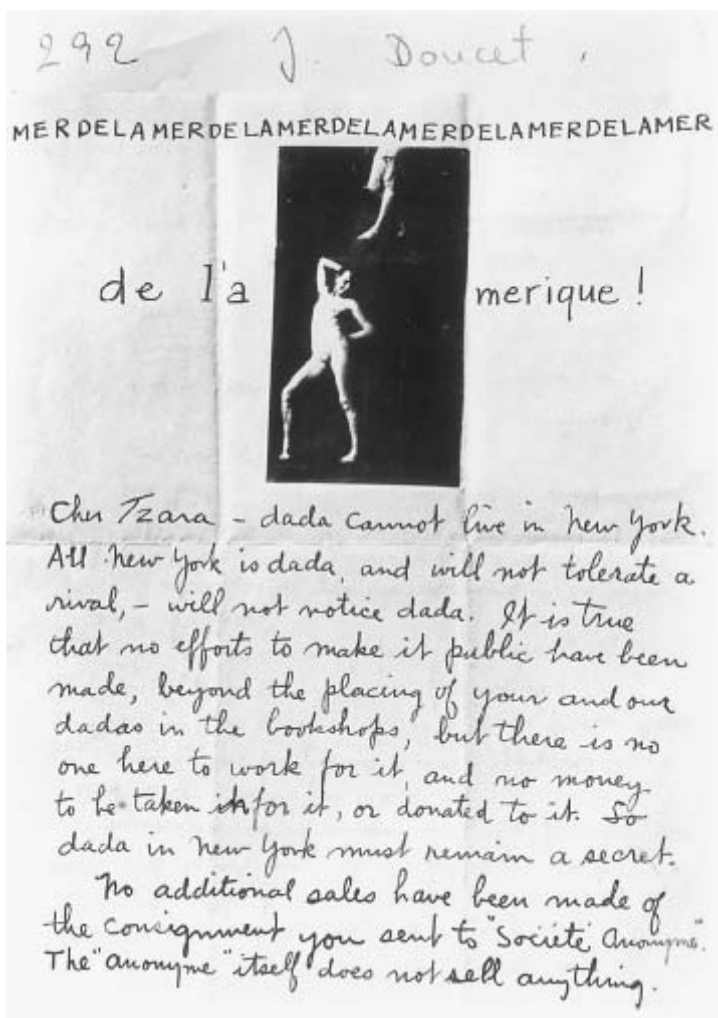 292 J. Doucet.
MERDELAMERDELAMERDELAMERDELAMERDELAMER
de l'a merique!
Cher Tzara - dada cannot live in New York.
All New York is dada, and will not tolerate a
rival, - will not notice dada. It is true
that no efforts to make it public have been
made, beyond the placing of your and our
dadas in the bookshops, but there is no
one here to work for it, and no money
to be taken in for it, or donated to it. So
dada in New York must remain a secret.
No additional sales have been made of
the consignment you sent to "Societé Anonyme".
The "anonyme" itself does not sell anything.